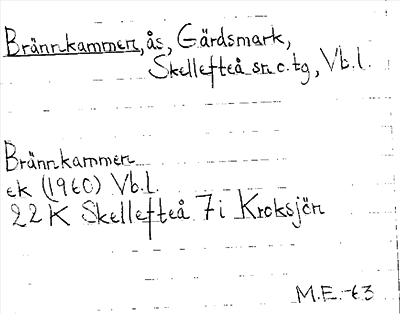 Brännkammen, ås, Gärdsmark,
Skellefteå sn o. tg, Vb.l.
Brännkammen
ek (1960) Vb.l.
22 K Skellefteå 7i Kroksjön
M.E.-63